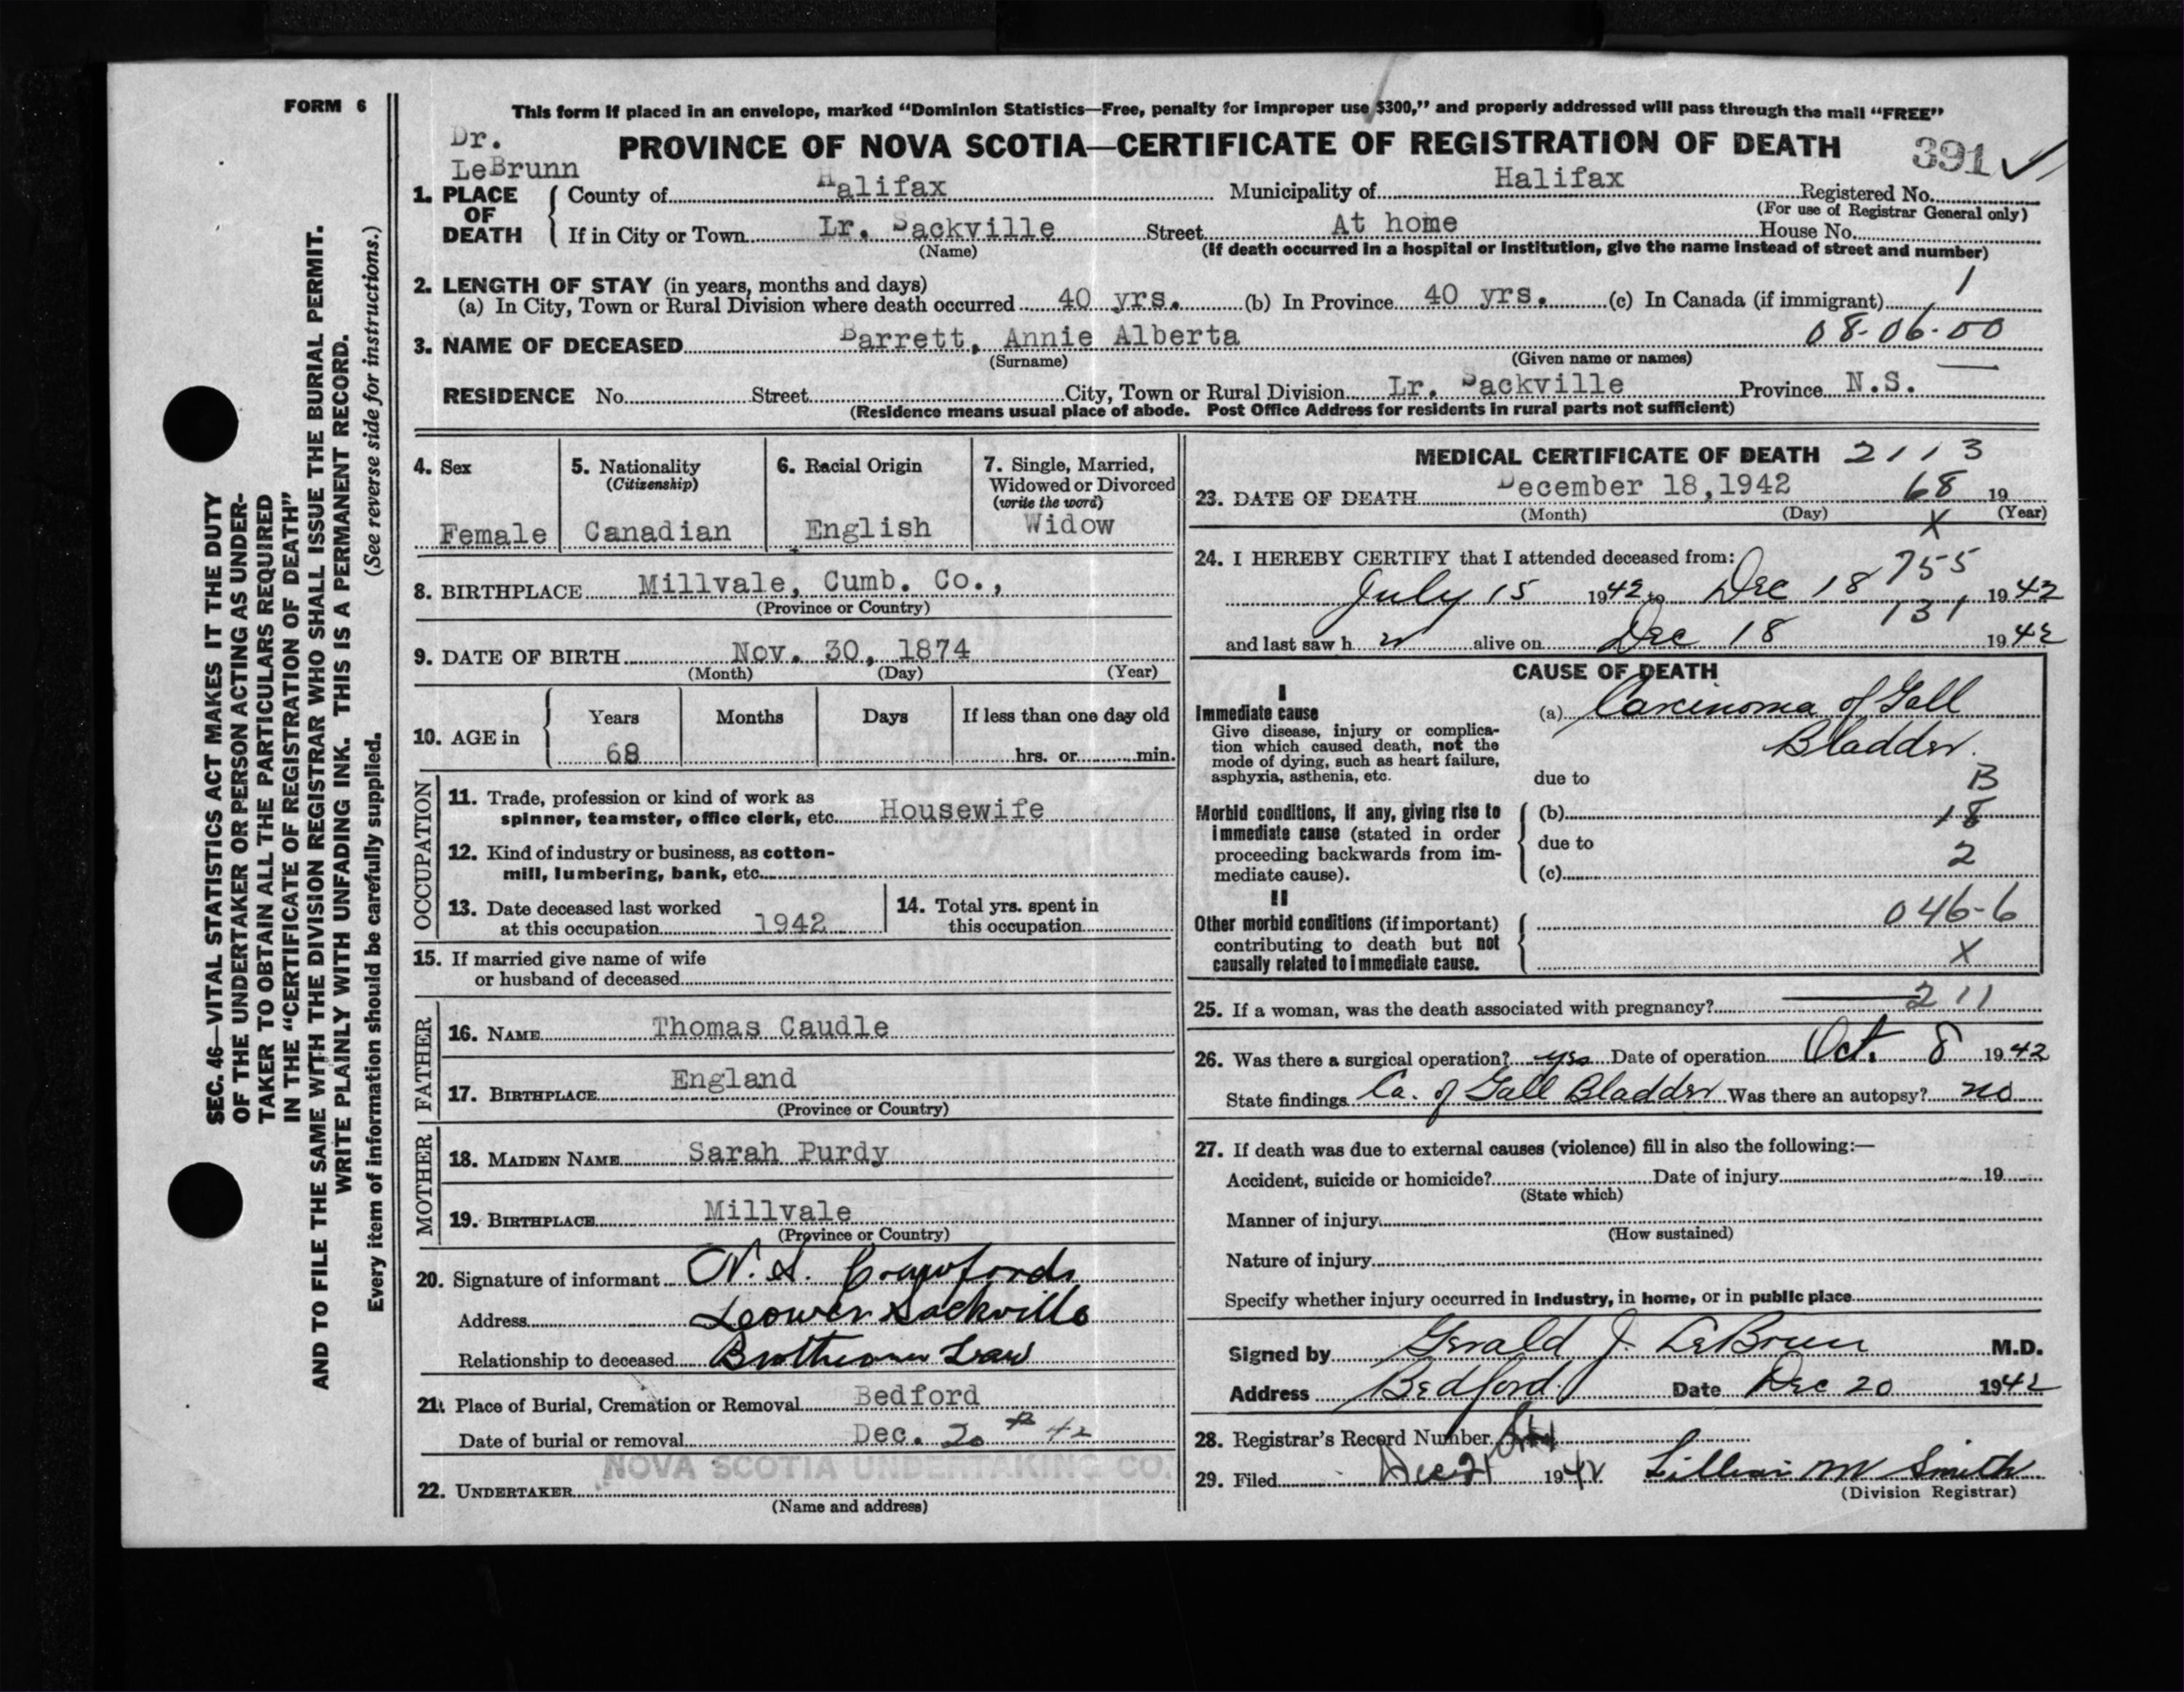 FORM 6
SEC. 46—VITAL STATISTICS ACT MAKES IT THE DUTY
OF THE UNDERTAKER OR PERSON ACTING AS UNDER-
TAKER TO OBTAIN ALL THE PARTICULARS REQUIRED
IN THE "CERTIFICATE OF REGISTRATION OF DEATH"
AND TO FILE THE SAME WITH THE DIVISION REGISTRAR WHO SHALL ISSUE THE BURIAL PERMIT.
WRITE PLAINLY WITH UNFADING INK. THIS IS A PERMANENT RECORD.
Every item of information should be carefully supplied. (See reverse side for instructions.)
This form if placed in an envelope, marked "Dominion Statistics—Free, penalty for improper use $300," and properly addressed will pass through the mail "FREE"
Dr.
LeBrunn
PROVINCE OF NOVA SCOTIA—CERTIFICATE OF REGISTRATION OF DEATH 391
1. PLACE OF DEATH County of Halifax Municipality of Halifax Registered No.
(For use of Registrar General only)
If in City or Town Lr. Sackville Street At home House No.
(Name) (If death occurred in a hospital or institution, give the name instead of street and number)
2. LENGTH OF STAY (in years, months and days) 1
(a) In City, Town or Rural Division where death occurred 40 yrs. (b) In Province 40 yrs. (c) In Canada (if immigrant)
3. NAME OF DECEASED Barrett, Annie Alberta 08-06-00
(Surname) (Given name or names)
RESIDENCE No. Street City, Town or Rural Division Lr. Sackville Province N.S.
(Residence means usual place of abode. Post Office Address for residents in rural parts not sufficient)
4. Sex
Female
5. Nationality
(Citizenship)
Canadian
6. Racial Origin
English
7. Single, Married,
Widowed or Divorced
(write the word)
Widow
8. BIRTHPLACE Millvale, Cumb. Co.,
(Province or Country)
9. DATE OF BIRTH Nov. 30, 1874
(Month) (Day) (Year)
10. AGE in Years Months Days If less than one day old
68 hrs. or min.
OCCUPATION
11. Trade, profession or kind of work as
spinner, teamster, office clerk, etc. Housewife
12. Kind of industry or business, as cotton-
mill, lumbering, bank, etc.
13. Date deceased last worked
at this occupation 1942
14. Total yrs. spent in
this occupation
15. If married give name of wife
or husband of deceased
FATHER
16. NAME Thomas Caudle
17. BIRTHPLACE England
(Province or Country)
MOTHER
18. MAIDEN NAME Sarah Purdy
19. BIRTHPLACE Millvale
(Province or Country)
20. Signature of informant N. S. Crawford
Address Lower Sackville
Relationship to deceased Brother in Law
21. Place of Burial, Cremation or Removal Bedford
Date of burial or removal Dec. 20 42
NOVA SCOTIA UNDERTAKING CO.
22. UNDERTAKER
(Name and address)
MEDICAL CERTIFICATE OF DEATH 2113
23. DATE OF DEATH December 18, 1942 68 19
(Month) (Day) (Year)
X
24. I HEREBY CERTIFY that I attended deceased from:
755
July 15 1942 to Dec 18 1942
131
and last saw h er alive on Dec 18 1942
CAUSE OF DEATH
I
Immediate cause
Give disease, injury or complica-
tion which caused death, not the
mode of dying, such as heart failure,
asphyxia, asthenia, etc.
(a) Carcinoma of Gall
Bladder.
due to B
Morbid conditions, if any, giving rise to
immediate cause (stated in order
proceeding backwards from im-
mediate cause).
(b) 18
due to 2
(c)
II
Other morbid conditions (if important)
contributing to death but not
causally related to immediate cause.
046-6
X
25. If a woman, was the death associated with pregnancy? 211
26. Was there a surgical operation? yes Date of operation Oct. 8 1942
State findings Ca. of Gall Bladder Was there an autopsy? no
27. If death was due to external causes (violence) fill in also the following:—
Accident, suicide or homicide? Date of injury 19
(State which)
Manner of injury
(How sustained)
Nature of injury
Specify whether injury occurred in industry, in home, or in public place
Signed by Gerald J. LeBrun M.D.
Address Bedford Date Dec 20 1942
28. Registrar's Record Number
29. Filed Dec 21 1942 Lillian M Smith
(Division Registrar)